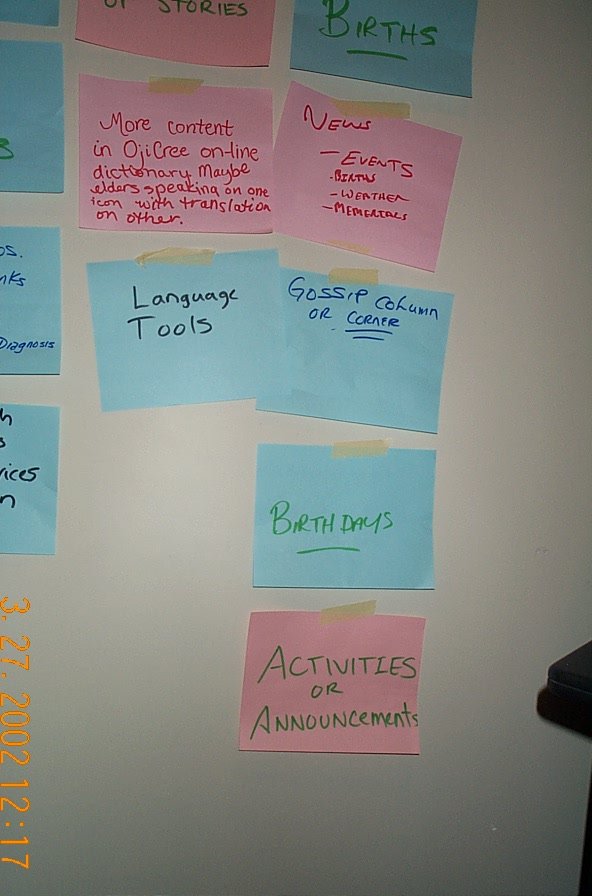 OF STORIES
BIRTHS
More content
in OjiCree on-line
dictionary Maybe
elders speaking on one
icon with translation
on other.
NEWS
- EVENTS
- BIRTHS
- WEATHER
- MEMERIALS
Language
Tools
GOSSIP COLUMN
OR CORNER
BIRTHDAYS
ACTIVITIES
OR
ANNOUNCEMENTS
Diagnosis
3.27.2002 12:17